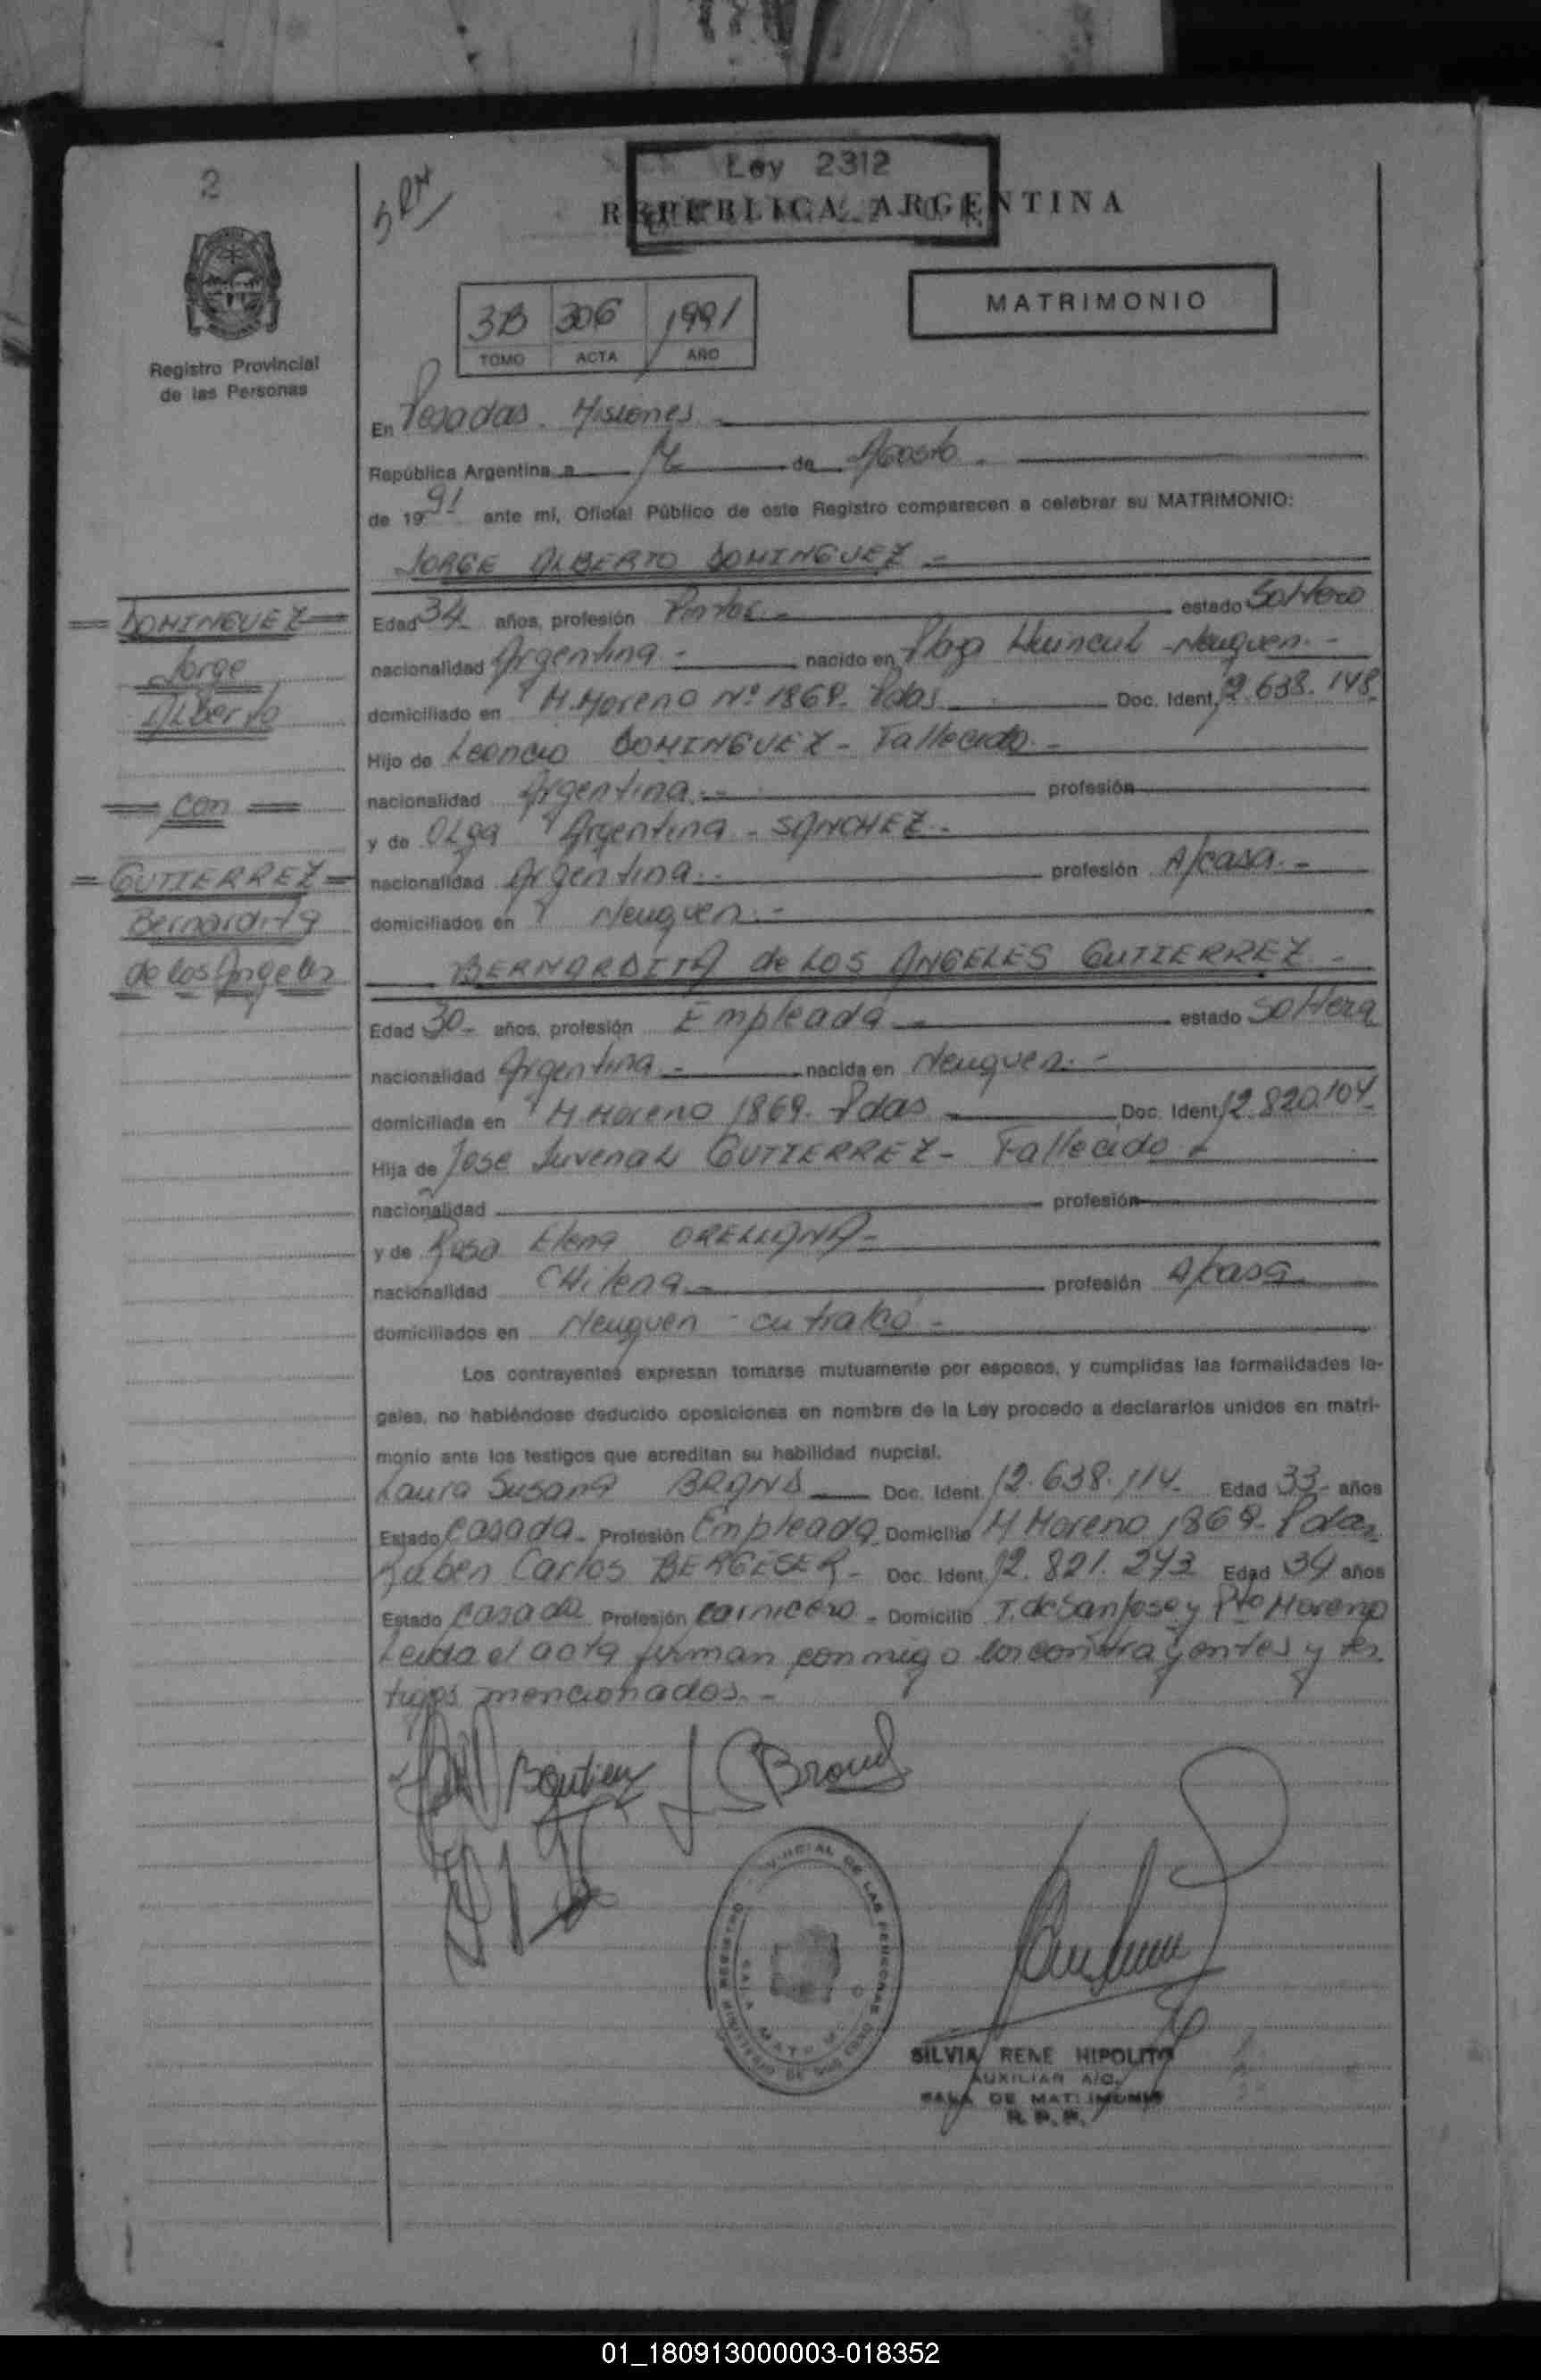 2
Ley 2312
REPUBLICA ARGENTINA
Registro Provincial
de las Personas
3B 306 1991
TOMO ACTA AÑO
MATRIMONIO
En Posadas - Misiones
República Argentina a de Agosto
de 1991 ante mí, Oficial Público de este Registro comparecen a celebrar su MATRIMONIO:
JORGE ALBERTO DOMINGUEZ
DOMINGUEZ
Jorge
Alberto
con
GUTIERREZ
Bernardita
de los Angeles
Edad 34 años, profesión Pintor estado Soltero
nacionalidad Argentina nacido en Plaza Huincul - Neuquen
domiciliado en M. Moreno Nº 1869 - Pdas Doc. Ident. 12.638.148
Hijo de Leoncio DOMINGUEZ - Fallecido
nacionalidad Argentina profesión
y de Olga Argentina - SANCHEZ
nacionalidad Argentina profesión A/casa
domiciliados en Neuquen
BERNARDITA de LOS ANGELES GUTIERREZ
Edad 30 años, profesión Empleada estado Soltera
nacionalidad Argentina nacida en Neuquen
domiciliada en M. Moreno 1869 - Pdas Doc. Ident. 12.820.104
Hija de Jose Juvenal GUTIERREZ - Fallecido
nacionalidad profesión
y de Rosa Elena ORELLANA
nacionalidad CHilena profesión A/casa
domiciliados en Neuquen - cutralco
Los contrayentes expresan tomarse mutuamente por esposos, y cumplidas las formalidades le-
gales, no habiéndose deducido oposiciones en nombre de la Ley procedo a declararlos unidos en matri-
monio ante los testigos que acreditan su habilidad nupcial.
Laura Susana BRAND Doc. Ident. 12.638.114 Edad 33 años
Estado Casada Profesión Empleada Domicilio M Moreno 1869 - Pdas
Ruben Carlos BERGESER Doc. Ident. 12.821.243 Edad 34 años
Estado casado Profesión carnicero Domicilio T. de San Jose y Pto Moreno
Leida el acta firman conmigo los contrayentes y tes
tigos mencionados.
SILVIA RENE HIPOLITO
AUXILIAR A/C.
SALA DE MATRIMONIO
R. P. P.
01_180913000003-018352